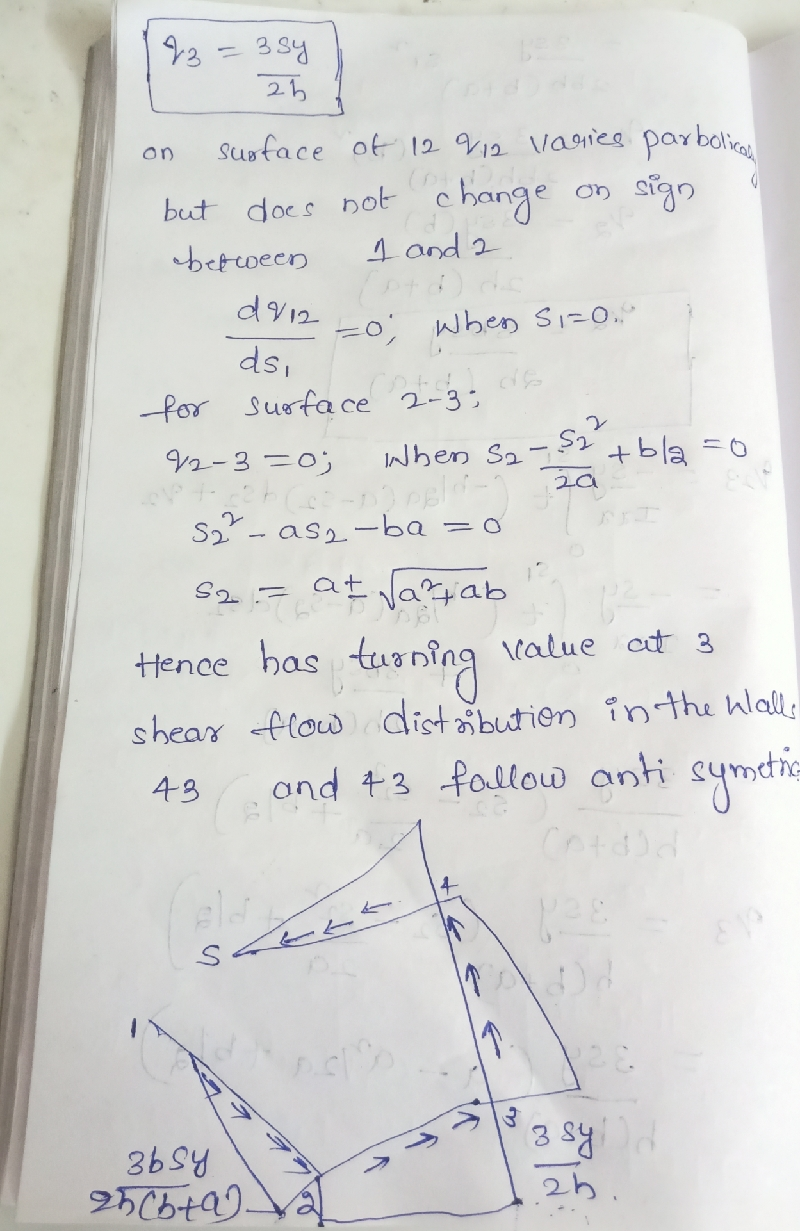 q3 = 3Sy / 2h
on surface of 12 q12 varies parbolically
but does not change on sign
between 1 and 2
dq12 / ds1 = 0; When S1=0.
for surface 2-3;
q2-3 = 0; When S2 - S2² / 2a + b/2 = 0
S2² - aS2 - ba = 0
S2 = a ± √a²+ab
Hence has turning value at 3
shear flow distribution in the Walls
43 and 43 follow anti symetric
4
S
1
3
3Sy / 2h.
3bSy / 2h(b+a)
2